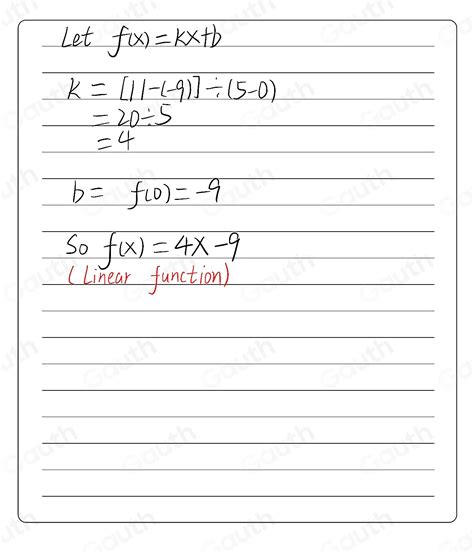 Let f(x)=kx+b
k = [11-(-9)]÷(5-0)
= 20÷5
= 4
b = f(0) = -9
So f(x) = 4x-9
(Linear function)